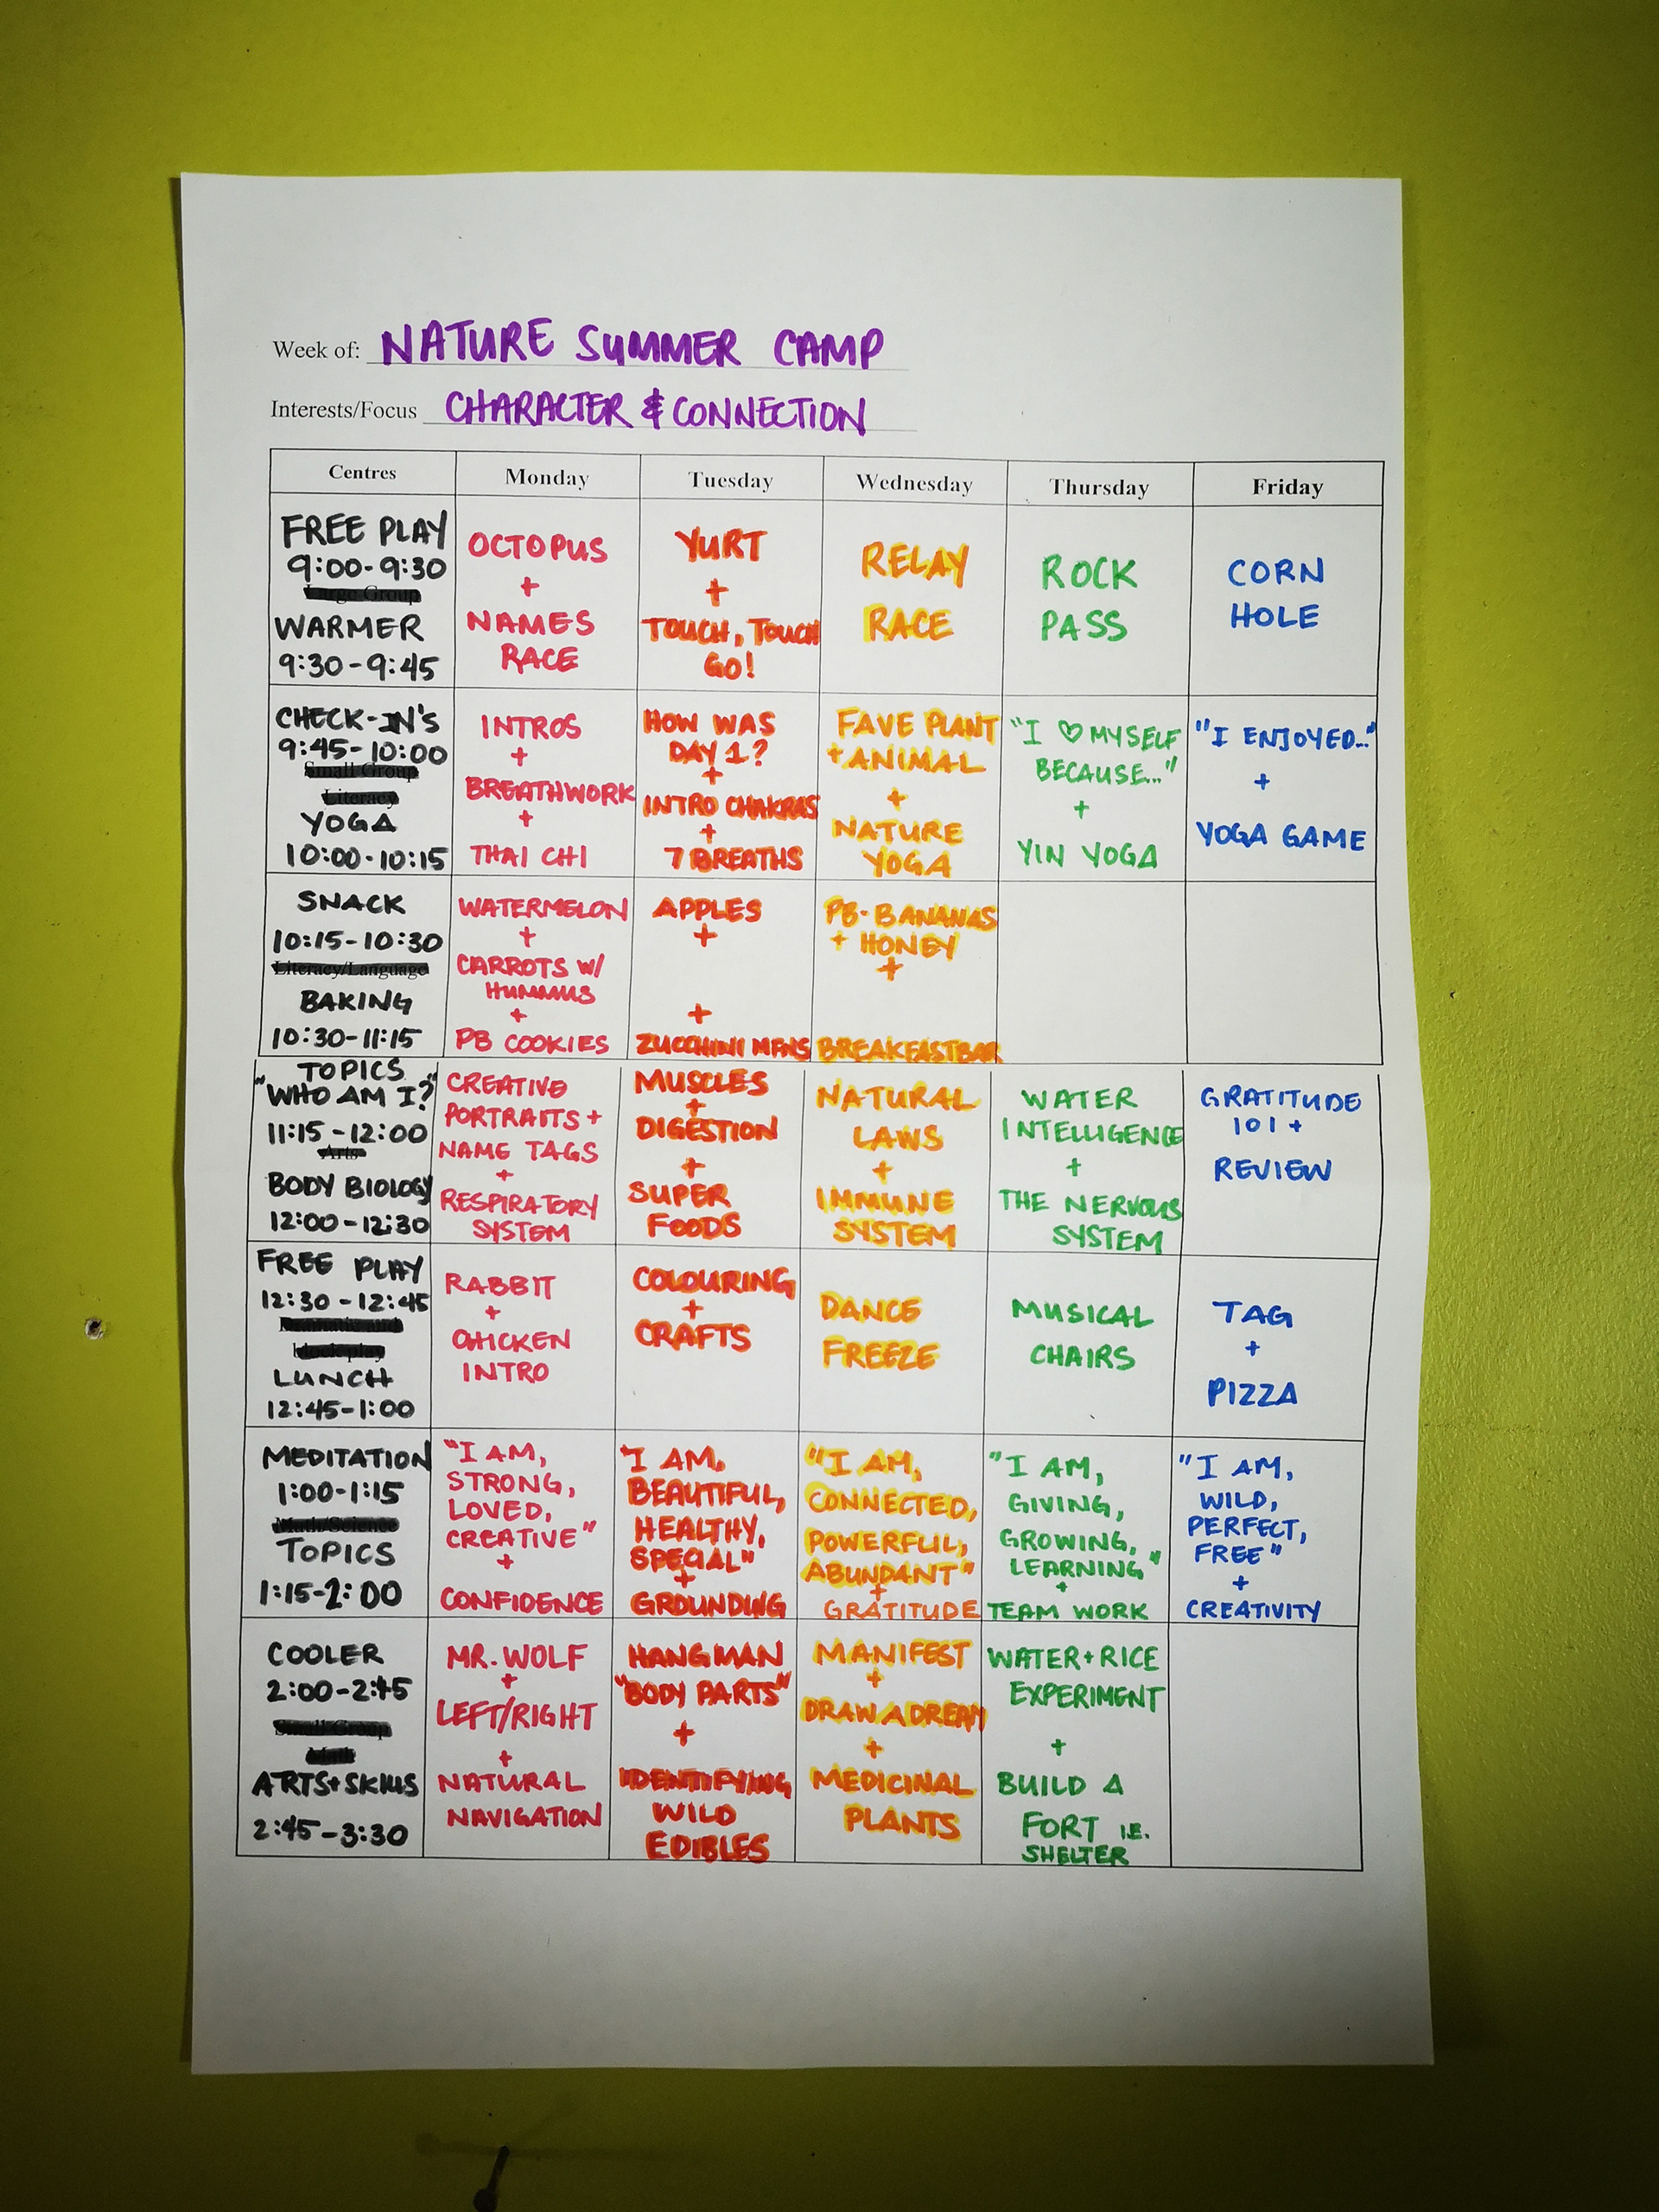 Week of: NATURE SUMMER CAMP
Interests/Focus CHARACTER & CONNECTION
Centres Monday Tuesday Wednesday Thursday Friday
FREE PLAY
9:00-9:30
Large Group
WARMER
9:30-9:45
OCTOPUS
+
NAMES
RACE
YURT
+
TOUCH, TOUCH
GO!
RELAY
RACE
ROCK
PASS
CORN
HOLE
CHECK-IN'S
9:45-10:00
Small Group
Literacy
YOGA
10:00-10:15
INTROS
+
BREATHWORK
+
THAI CHI
HOW WAS
DAY 1?
+
INTRO CHAKRAS
+
7 BREATHS
FAVE PLANT
+ ANIMAL
+
NATURE
YOGA
"I ♡ MYSELF
BECAUSE..."
+
YIN YOGA
"I ENJOYED..."
+
YOGA GAME
SNACK
10:15-10:30
Literacy/Language
BAKING
10:30-11:15
WATERMELON
+
CARROTS W/
HUMMUS
+
PB COOKIES
APPLES
+
+
ZUCCHINI MFNS
PB-BANANAS
+ HONEY
+
BREAKFASTBAR
TOPICS
"WHO AM I?"
11:15-12:00
Arts
BODY BIOLOGY
12:00-12:30
CREATIVE
PORTRAITS +
NAME TAGS
+
RESPIRATORY
SYSTEM
MUSCLES
+
DIGESTION
+
SUPER
FOODS
NATURAL
LAWS
+
IMMUNE
SYSTEM
WATER
INTELLIGENCE
+
THE NERVOUS
SYSTEM
GRATITUDE
101 +
REVIEW
FREE PLAY
12:30-12:45
LUNCH
12:45-1:00
RABBIT
+
CHICKEN
INTRO
COLOURING
+
CRAFTS
DANCE
FREEZE
MUSICAL
CHAIRS
TAG
+
PIZZA
MEDITATION
1:00-1:15
Math/Science
TOPICS
1:15-2:00
"I AM,
STRONG,
LOVED,
CREATIVE"
+
CONFIDENCE
"I AM,
BEAUTIFUL,
HEALTHY,
SPECIAL"
+
GROUNDING
"I AM,
CONNECTED,
POWERFUL,
ABUNDANT"
+
GRATITUDE
"I AM,
GIVING,
GROWING,
LEARNING"
+
TEAM WORK
"I AM,
WILD,
PERFECT,
FREE"
+
CREATIVITY
COOLER
2:00-2:45
Small Group
Math
ARTS+SKILLS
2:45-3:30
MR. WOLF
+
LEFT/RIGHT
+
NATURAL
NAVIGATION
HANGMAN
"BODY PARTS"
+
IDENTIFYING
WILD
EDIBLES
MANIFEST
+
DRAW A DREAM
+
MEDICINAL
PLANTS
WATER+RICE
EXPERIMENT
+
BUILD A
FORT I.E.
SHELTER